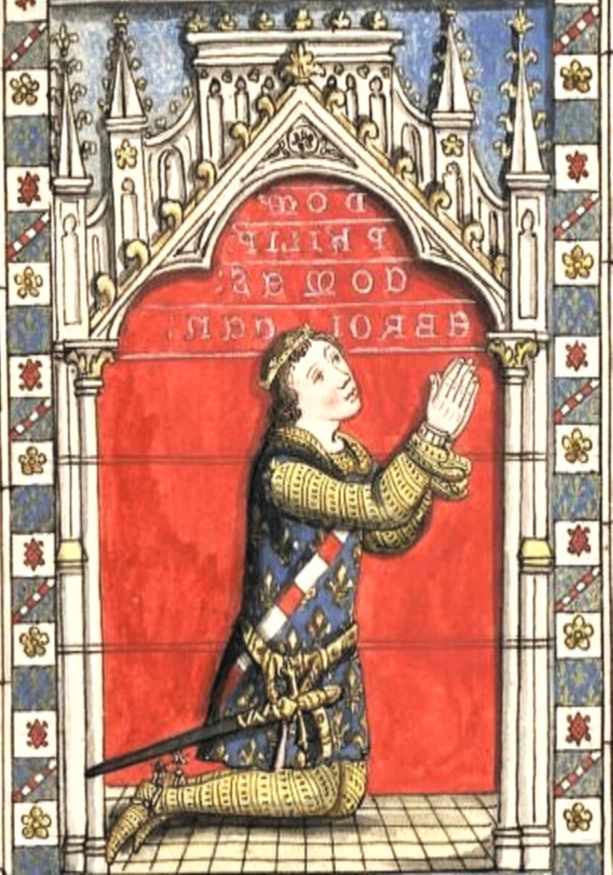 DOMS
PHILIP
COMES:
EBROICEN: